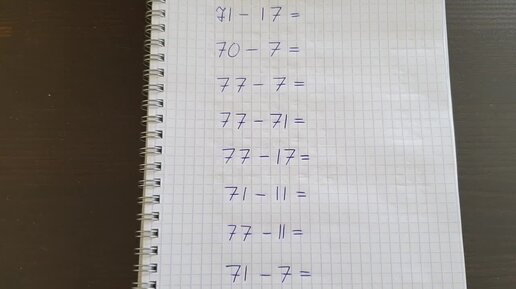 71 - 17 =
70 - 7 =
77 - 7 =
77 - 71 =
77 - 17 =
71 - 11 =
77 - 11 =
71 - 7 =